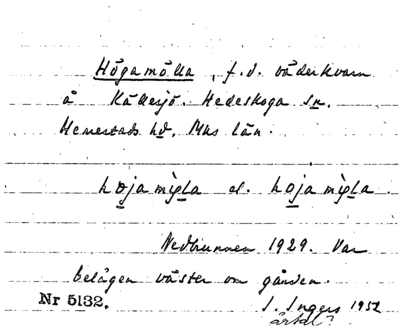 Högamölla, f.d. väderkvarn
å Källesjö. Hedeskoga sn.
Herrestads hd, Mlhs län.
hǫja mìǫla el. hǫja mìǫla.
Nedbrunnen 1929. Var
belägen väster om gården.
Nr 5132.
I. Ingers 1952